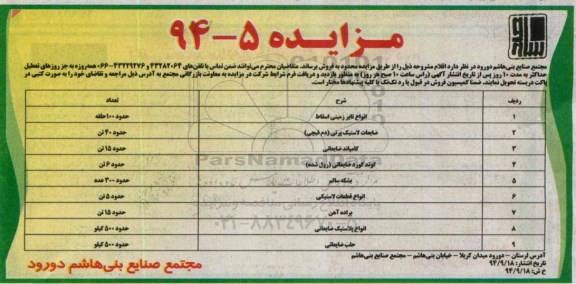 مزایده ۵-۹۴
مجتمع صنایع بنی‌هاشم دورود در نظر دارد اقلام مشروحه ذیل را از طریق مزایده محدود به فروش برساند. متقاضیان محترم می‌توانند ضمن تماس با تلفن‌های ۴۳۲۸۲۰۶۴ و ۴۳۲۲۹۲۷۶-۰۶۶ همه‌روزه به جز روزهای تعطیل
حداکثر به مدت ۱۰ روز پس از تاریخ انتشار آگهی (راس ساعت ۱۰ صبح هر روز) به منظور بازدید و دریافت فرم شرایط شرکت در مزایده به معاونت بازرگانی مجتمع به آدرس ذیل مراجعه و تقاضای خود را به صورت کتبی در
پاکت دربسته تحویل نمایند. ضمنا کمیسیون فروش در قبول یا رد تک‌تک یا کلیه پیشنهادها مختار است.
ردیف شرح تعداد
۱ انواع تایر زمینی اسقاط حدود ۱۰۰ حلقه
۲ ضایعات لاستیک پرتی (دم قیچی) حدود ۴۰ تن
۳ کامپاند ضایعاتی حدود ۱۵ تن
۴ کوتد کورد ضایعاتی (رول شده) حدود ۶ تن
۵ بشکه سالم حدود ۳۰۰ عدد
۶ انواع قطعات لاستیکی حدود ۵ تن
۷ براده آهن حدود ۱۵ تن
۸ انواع پلاستیک ضایعاتی حدود ۵۰۰ کیلو
۹ حلب ضایعاتی حدود ۵۰۰ کیلو
ParsNamadData
۰۲۱-۸۸۳۴۹۶۷۰
آدرس: لرستان - دورود میدان کربلا - خیابان بنی‌هاشم - مجتمع صنایع بنی‌هاشم
تاریخ انتشار: ۹۴/۹/۱۸
خ ش: ۹۴/۹/۱۸
مجتمع صنایع بنی‌هاشم دورود